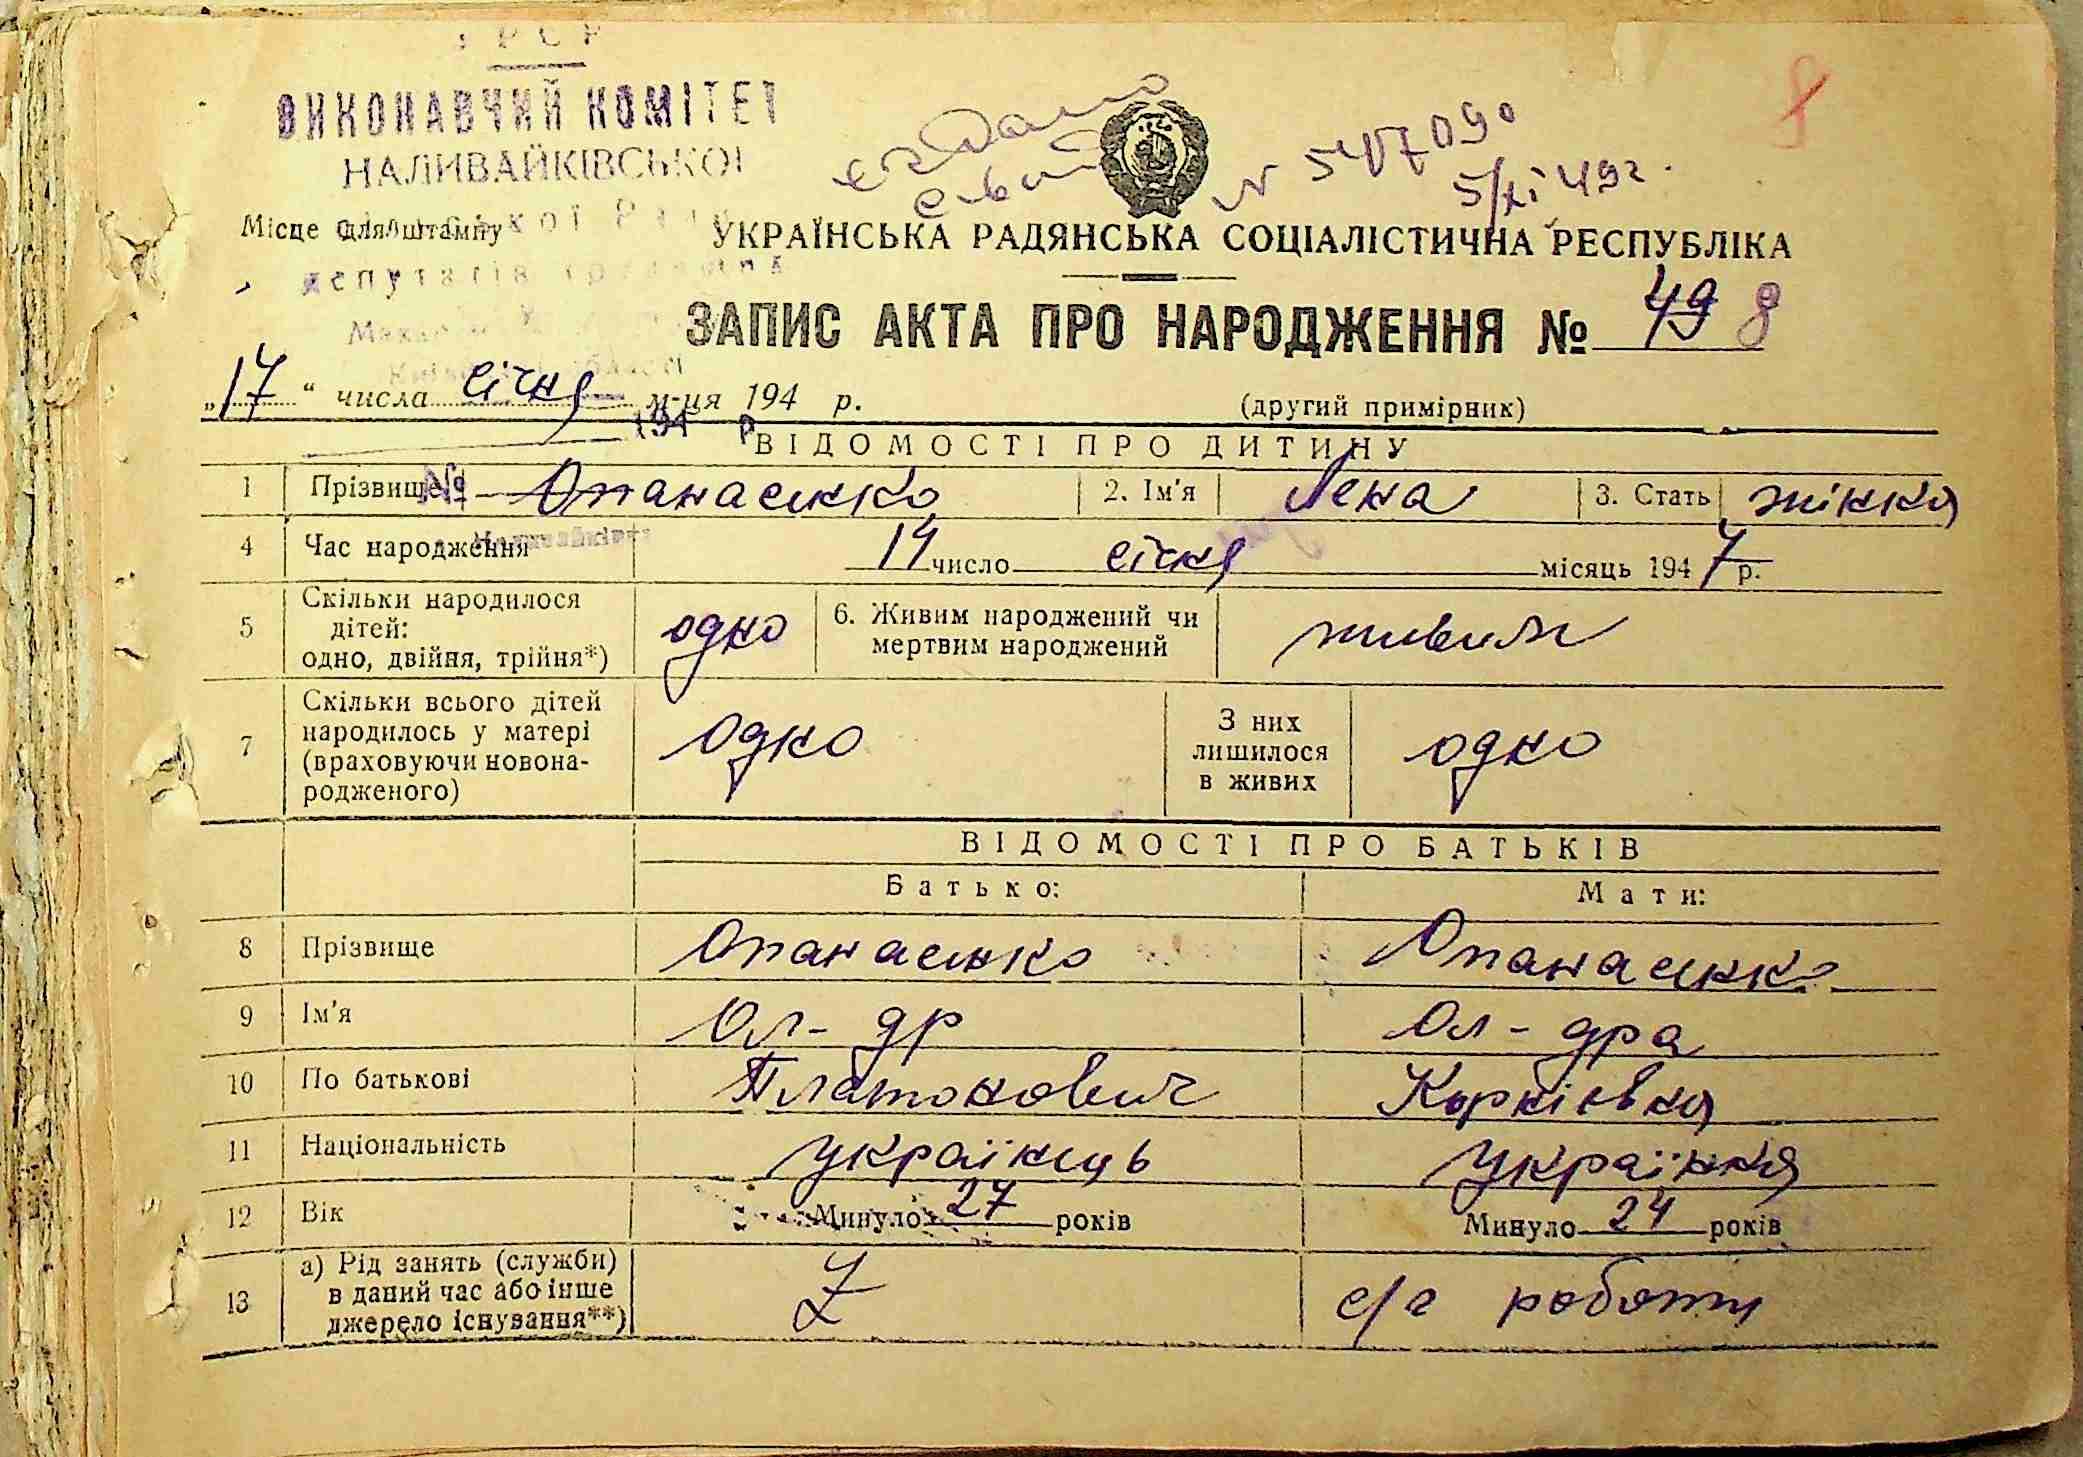 УРСР
ВИКОНАВЧИЙ КОМІТЕТ
НАЛИВАЙКІВСЬКОЇ
Місце для штампу
депутатів трудящих
видано
N 5417090
5/XI 49г.
8
УКРАЇНСЬКА РАДЯНСЬКА СОЦІАЛІСТИЧНА РЕСПУБЛІКА
ЗАПИС АКТА ПРО НАРОДЖЕННЯ № 49 8
„17“ числа січня м-ця 194 р. (другий примірник)
194 р
ВІДОМОСТІ ПРО ДИТИНУ
1 Прізвище № Опанасенко 2. Ім'я Лена 3. Стать жінка
4 Час народження 14 число січня місяць 1947 р.
5 Скільки народилося дітей: одно, двійня, трійня*) одно 6. Живим народжений чи мертвим народжений живим
7 Скільки всього дітей народилось у матері (враховуючи новонародженого) одно З них лишилося в живих одно
ВІДОМОСТІ ПРО БАТЬКІВ
Батько: Мати:
8 Прізвище Опанасенко Опанасенко
9 Ім'я Ол-др Ол-дра
10 По батькові Платонович
11 Національність українець українка
12 Вік Минуло 27 років Минуло 24 років
13 а) Рід занять (служби) в даний час або інше джерело існування**) Z с/г роботи